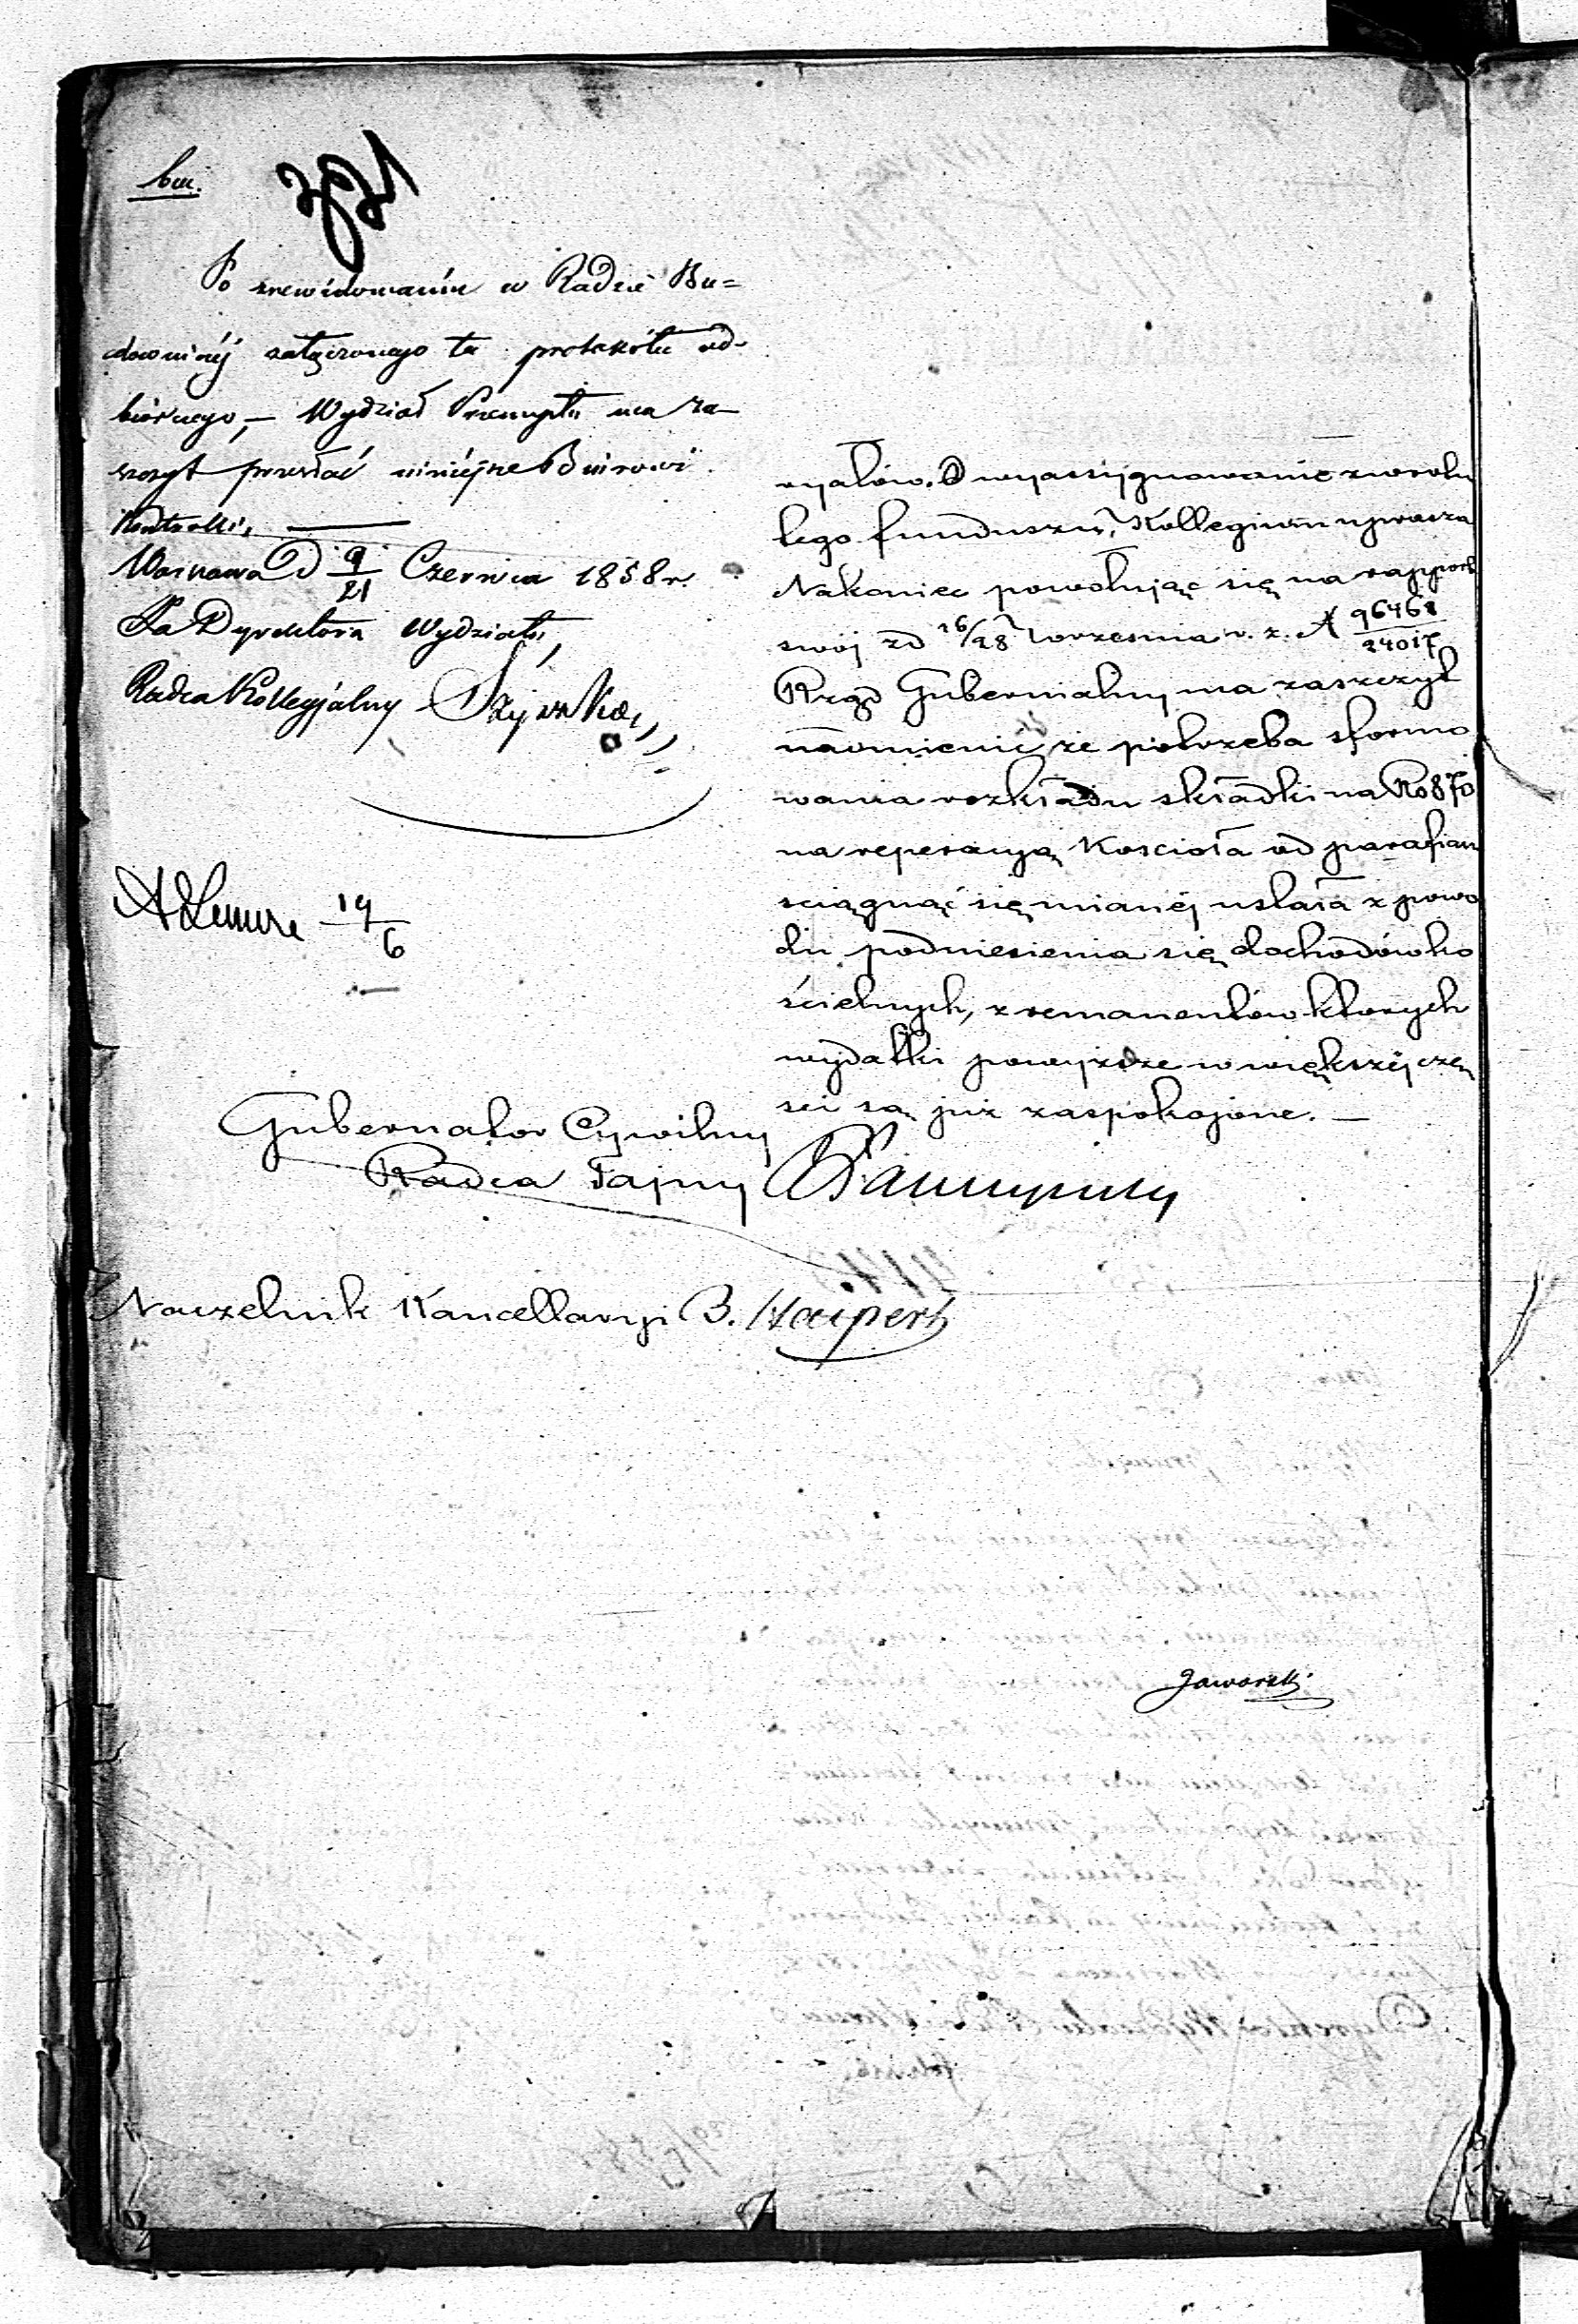 Po zrewidowaniu w Radzie Bu=
downiczéj załączonego tu protokółu od-
biórczego, — Wydział Przemysłu ma za-
szczyt przesłać niniéjsze Biurowi
Kontrolli. —
Warszawa d 9/21 Czerwca 1858 r.
Za Dyrektora Wydziału,
Radca Kollegjalny
19/6
ryałów. O wyassygnowanie zwrotu
tego funduszu, Kollegium uprasza
Nakoniec powołując się na rapport
swój zd 16/28 Września r. z. N 96468/24017
Rząd Gubernialny ma zaszczyt
nadmienić że potrzeba sformo
wania rozkładu składki na Rs 870
na reperacyą Kościoła od parafian
sciągnąć się mianéj ustała z powo
du podniesienia się dochodów ko
ścielnych, z remanentów których
wydatki powyższe w większéj czę
sci są już zaspokojone. —
Gubernator Cywilny
Radca Tajny
Naczelnik Kancellaryi B. Haipert
Jaworski